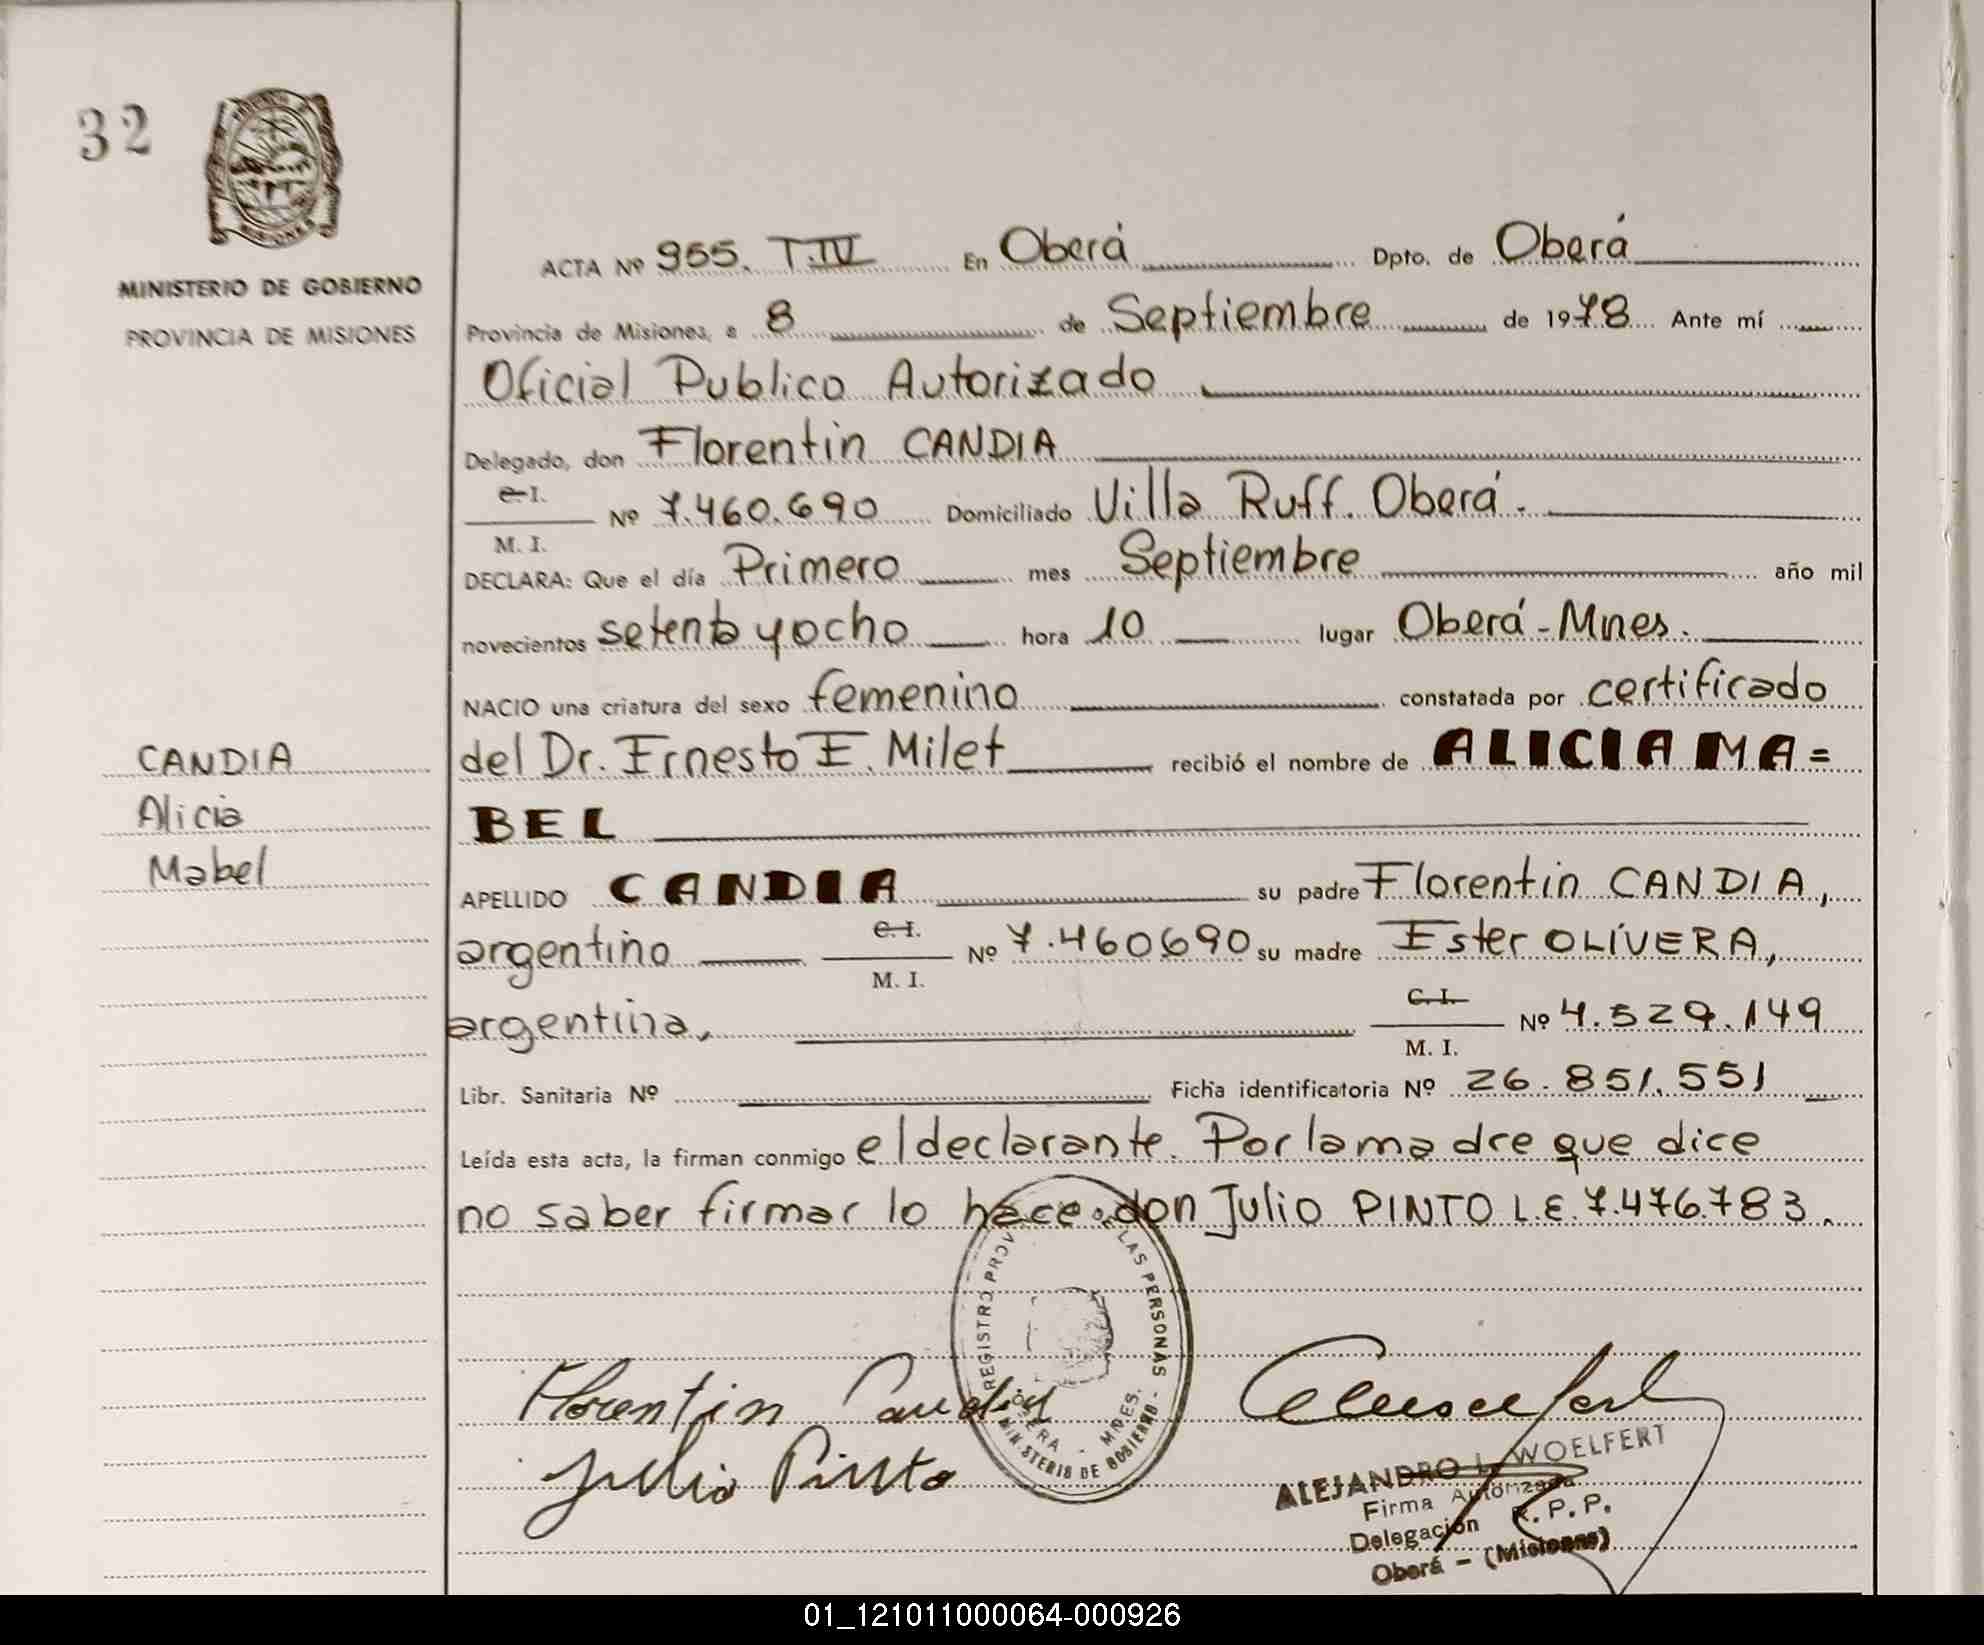 32
MINISTERIO DE GOBIERNO
PROVINCIA DE MISIONES
CANDIA
Alicia
Mabel
ACTA Nº 955. T.IV En Oberá Dpto. de Oberá
Provincia de Misiones, a 8 de Septiembre de 1978 Ante mí
Oficial Publico Autorizado
Delegado, don Florentin CANDIA
C.I.
M. I. Nº 7.460.690 Domiciliado Villa Ruff. Oberá.
DECLARA: Que el día Primero mes Septiembre año mil
novecientos setenta y ocho hora 10 lugar Oberá - Mnes.
NACIO una criatura del sexo femenino constatada por certificado
del Dr. Ernesto E. Milet recibió el nombre de ALICIA MA=
BEL
APELLIDO CANDIA su padre Florentin CANDIA,
argentino C.I. M. I. Nº 7.460690 su madre Ester OLIVERA,
argentina, C.I. M. I. Nº 4.529.149
Libr. Sanitaria Nº Ficha identificatoria Nº 26.851.551
Leída esta acta, la firman conmigo el declarante. Por la madre que dice
no saber firmar lo hace don Julio PINTO L.E. 7.476.783.
REGISTRO PROV DE LAS PERSONAS
MINISTERIO DE GOBIERNO
MNES.
Florentin Candia
Julio Pinto
ALEJANDRO L. WOELFERT
Firma Autorizada
Delegación R. P. P.
Oberá - (Misiones)
01_121011000064-000926